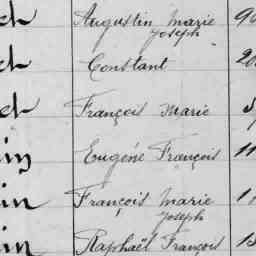 Augustin Marie
Joseph
Constant
François Marie
Eugène François
François Marie
Joseph
Raphaël François